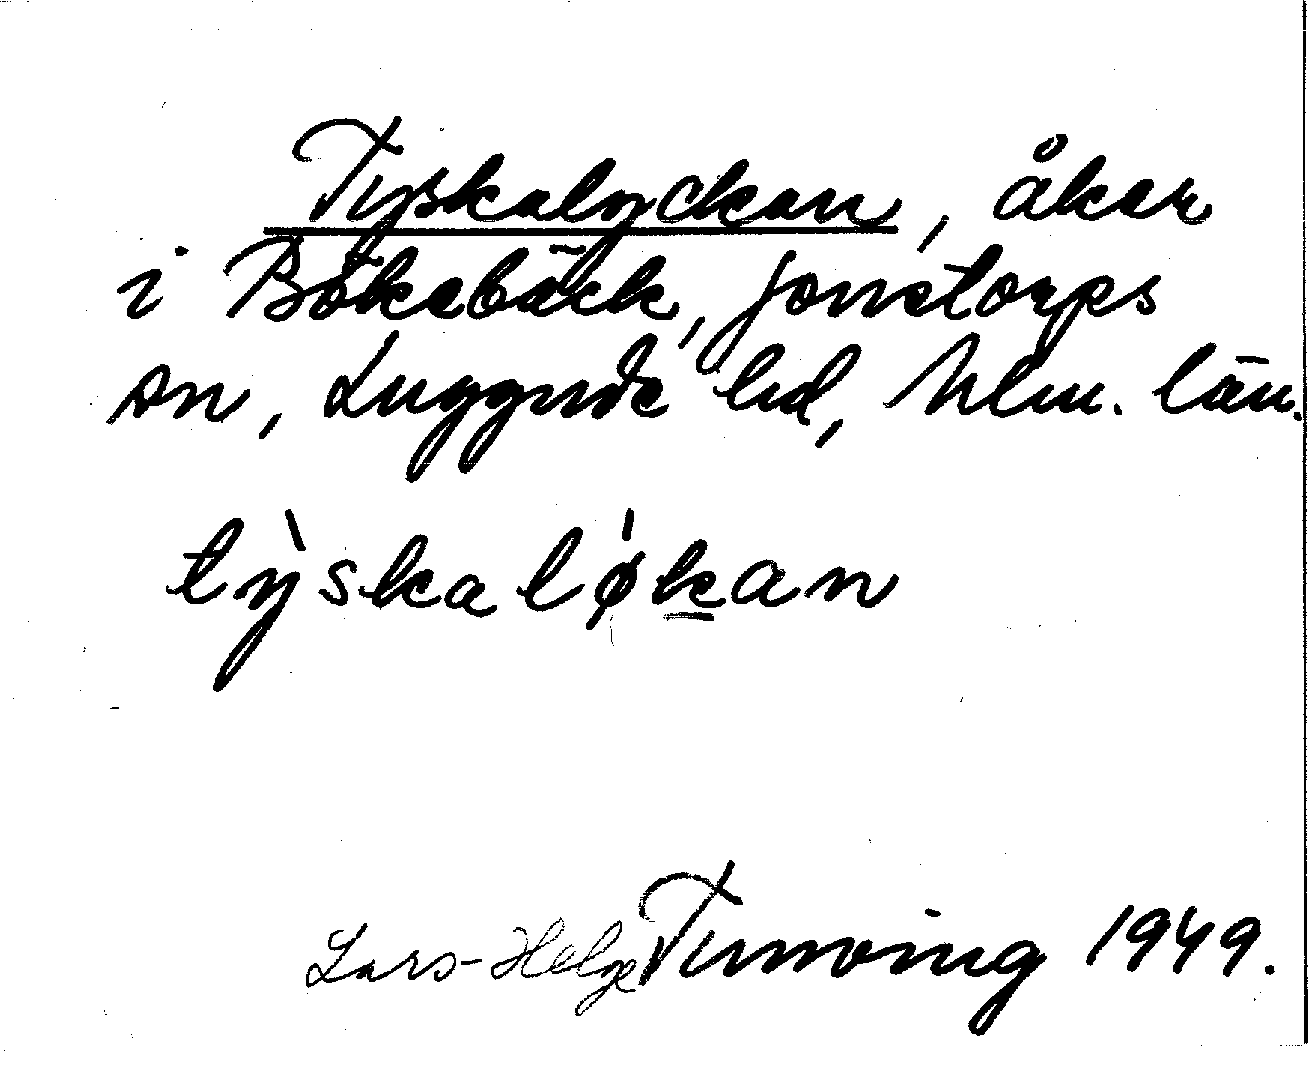 Tyskalyckan, åker
i Bökebäck, Jonstorps
sn, Luggude hd, Mlm. län.
tỳskalǿkan
Lars-Helge Turnving 1949.